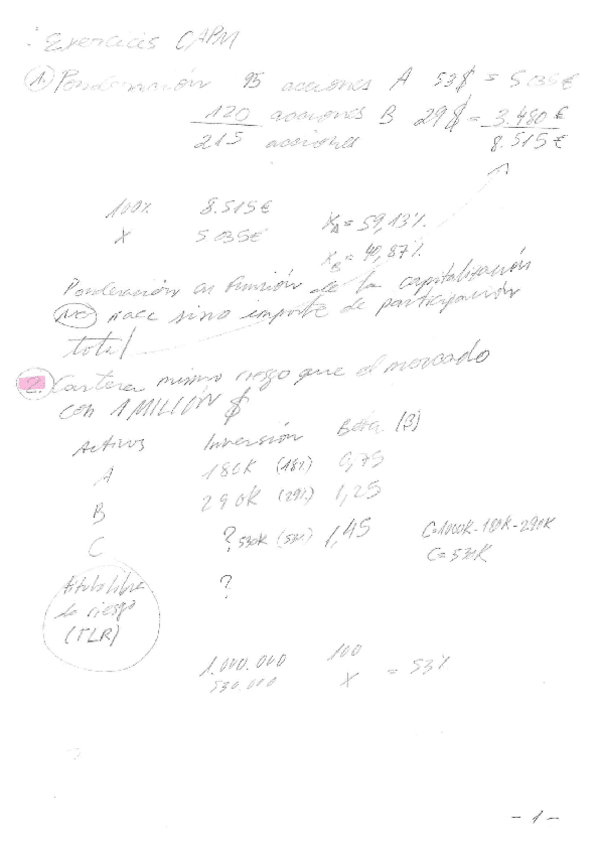 Exercicis CAPM
1. Ponderación 95 acciones A 53$ = 5.035€
120 acciones B 29$ = 3.480€
215 acciones 8.515€
100% 8.515€ XA = 59,13%
X 5035€ XB = 40,87%
Ponderación en función de la capitalización
NO hace sino importe de participación
total
2. Cartera mismo riesgo que el mercado
con 1 MILLIÓN $
Activos Inversión Beta (β)
A 180K (18%) 0,75
B 290K (29%) 1,25
C ? 530K (53%) 1,45 C=1000K-180K-290K
C=530K
titulo libre ?
de riesgo
(TLR)
1.000.000 100
530.000 X = 53%
- 1 -